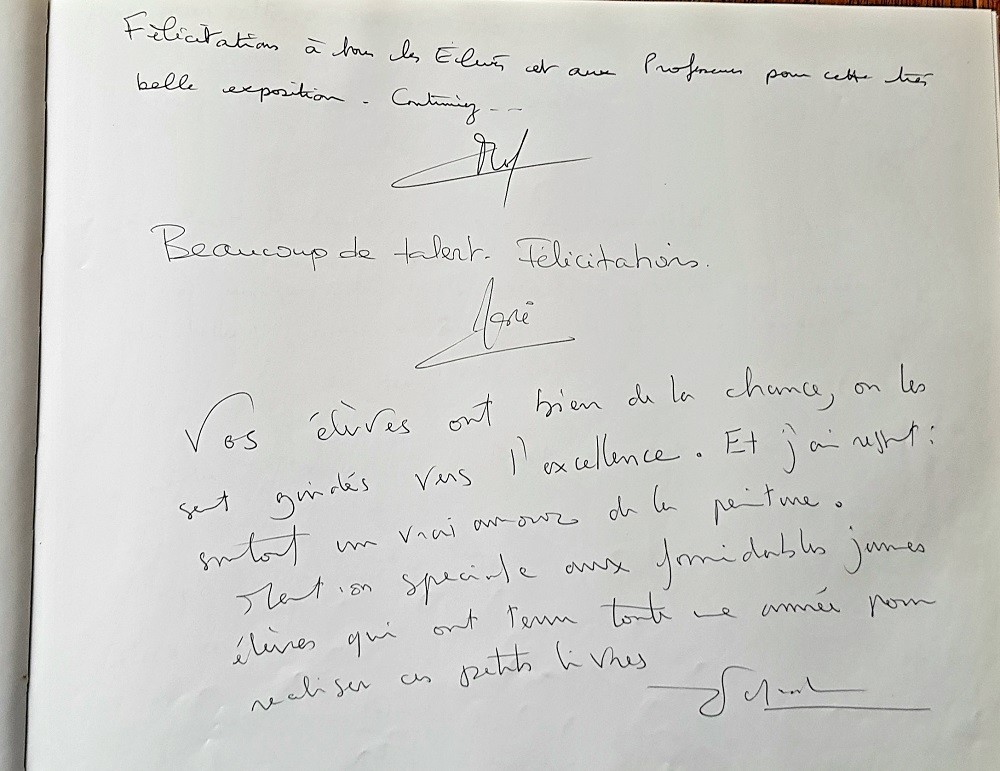 Félicitations à tous les Élèves et aux Professeurs pour cette très
belle exposition. Continuez --
Beaucoup de talent. Félicitations.
Vos élèves ont bien de la chance, on les
sent guidés vers l'excellence. Et j'ai ressenti :
surtout un vrai amour de la peinture.
Mention spéciale aux formidables jeunes
élèves qui ont tenu toute une année pour
realiser ces petits livres